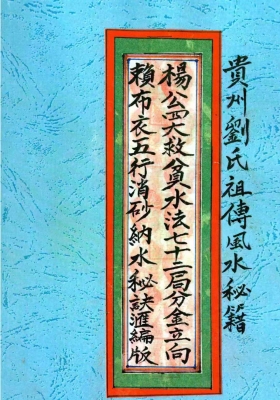 貴州劉氏祖傳風水秘籍
楊公四大救貧水法七十二局分金立向
賴布衣五行消砂納水秘訣匯編版